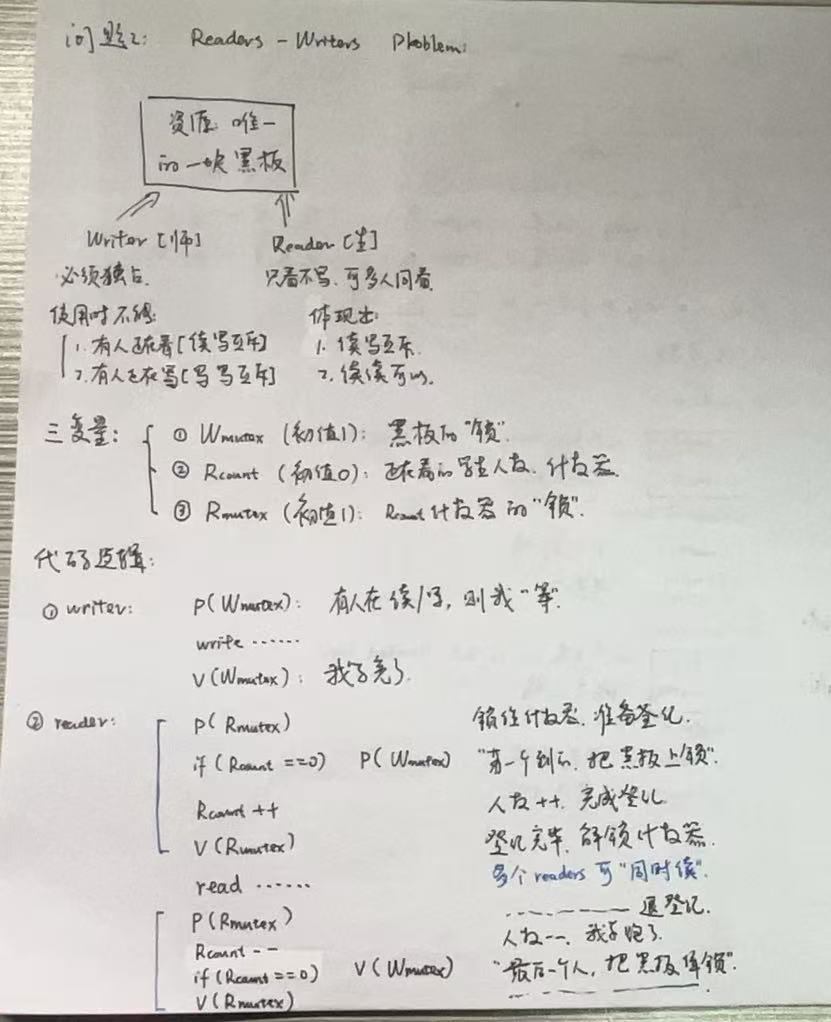 问题2: Readers - Writers Problem:
资源: 唯一
的一块黑板
Writer [师] Reader [生]
必须独占. 只看不写. 可多人同看.
使用时不能: 体现出:
1. 有人还在看[读写互斥] 1. 读写互斥.
2. 有人还在写[写写互斥] 2. 读读可以.
三变量: ① Wmutex (初值1): 黑板的"锁".
② Rcount (初值0): 还在看的学生人数. 计数器.
③ Rmutex (初值1): Rcount 计数器的"锁".
代码逻辑:
① writer: P(Wmutex): 有人在读/写, 则我"等".
write ······
V(Wmutex): 我写完了.
② reader: P(Rmutex) 锁住计数器. 准备登记.
if (Rcount ==0) P(Wmutex) "第一个到的, 把黑板上锁".
Rcount ++ 人数++. 完成登记.
V(Rmutex) 登记完毕. 解锁计数器.
read ······ 多个 readers 可"同时读".
P(Rmutex) 退登记.
Rcount -- 人数--.
if (Rcount ==0) V(Wmutex) "最后一个人, 把黑板解锁".
V(Rmutex)